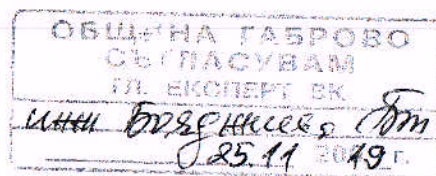 ОБЩИНА ГАБРОВО
СЪГЛАСУВАМ
ГЛ. ЕКСПЕРТ ВК
инж Бояджиев
25.11 2019 г.